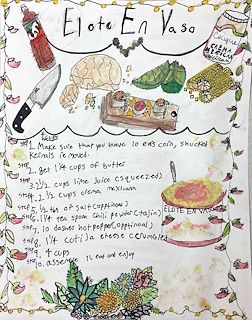 Elote En Vaso
1. Make sure that you have 10 ears corn, shucked
kernals removed.
2. get 1 1/4 cups of butter
3. 2 1/2 cups lime Juice (squeezed)
4. 2 1/2 cups crema mexicana
5. tsp of salt (opptinal)
6. 1 1/4 tea spoon chili powder (tajin)
7. 10 dashes hot pepper (opptional)
8. 1 1/4 cotija cheese crumbled
9. 4 cups
10. assemble eat and enjoy
ELOTE EN VASO
CREMA